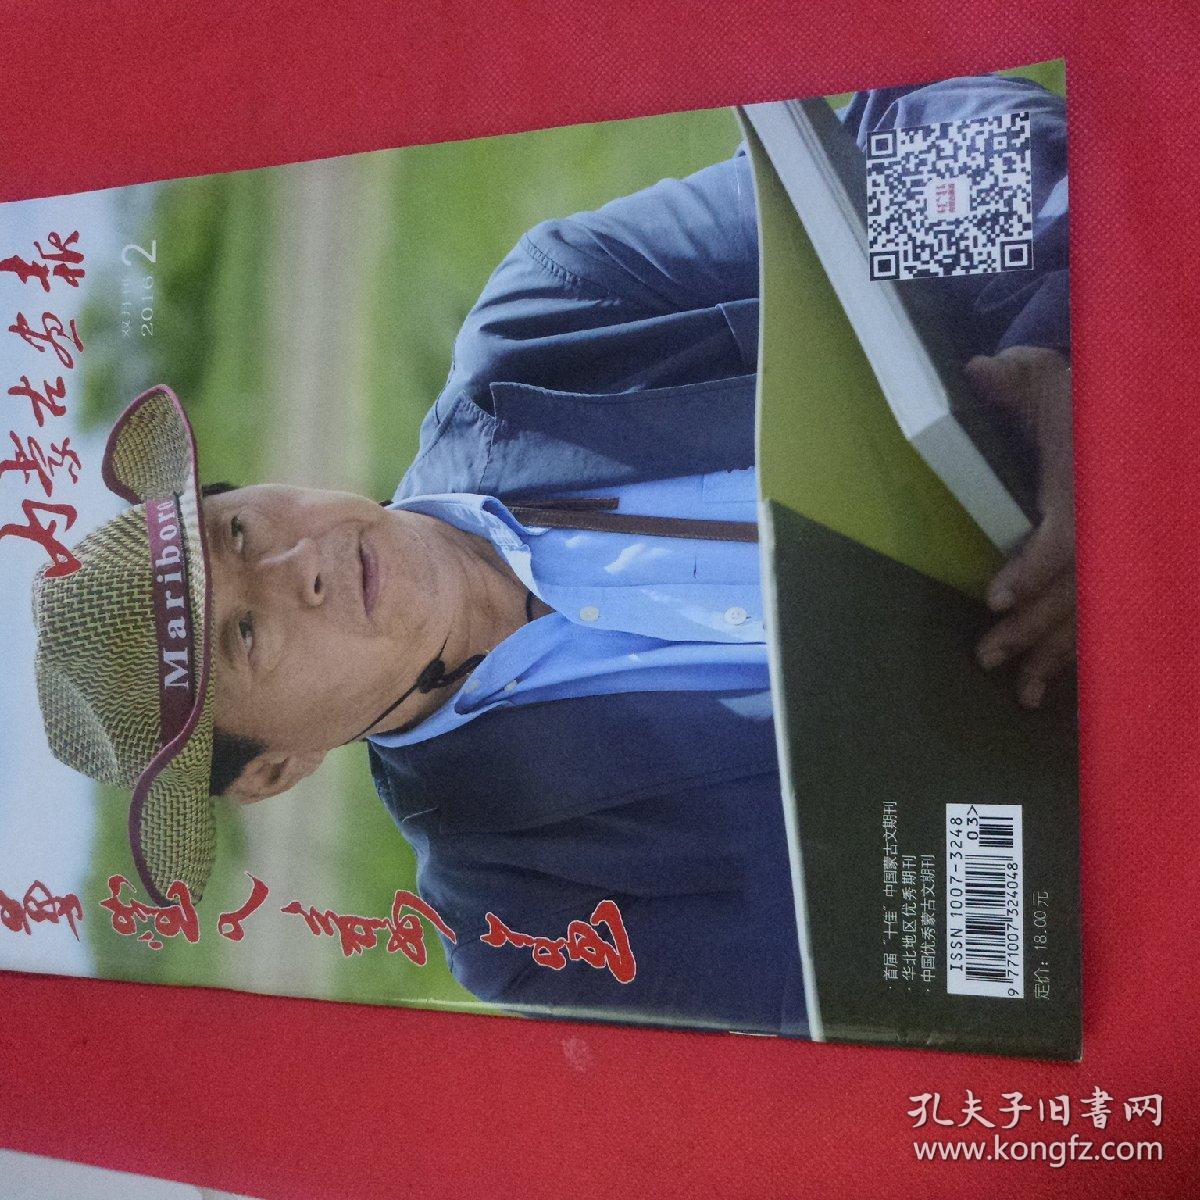 内蒙古画报
双月刊
2016 2
Maribore
· 首届“十佳”中国蒙古文期刊
· 华北地区优秀期刊
· 中国优秀蒙古文期刊
ISSN 1007-3248
03>
9 771007 324048
定价：18.00 元
孔夫子旧书网
www.kongfz.com